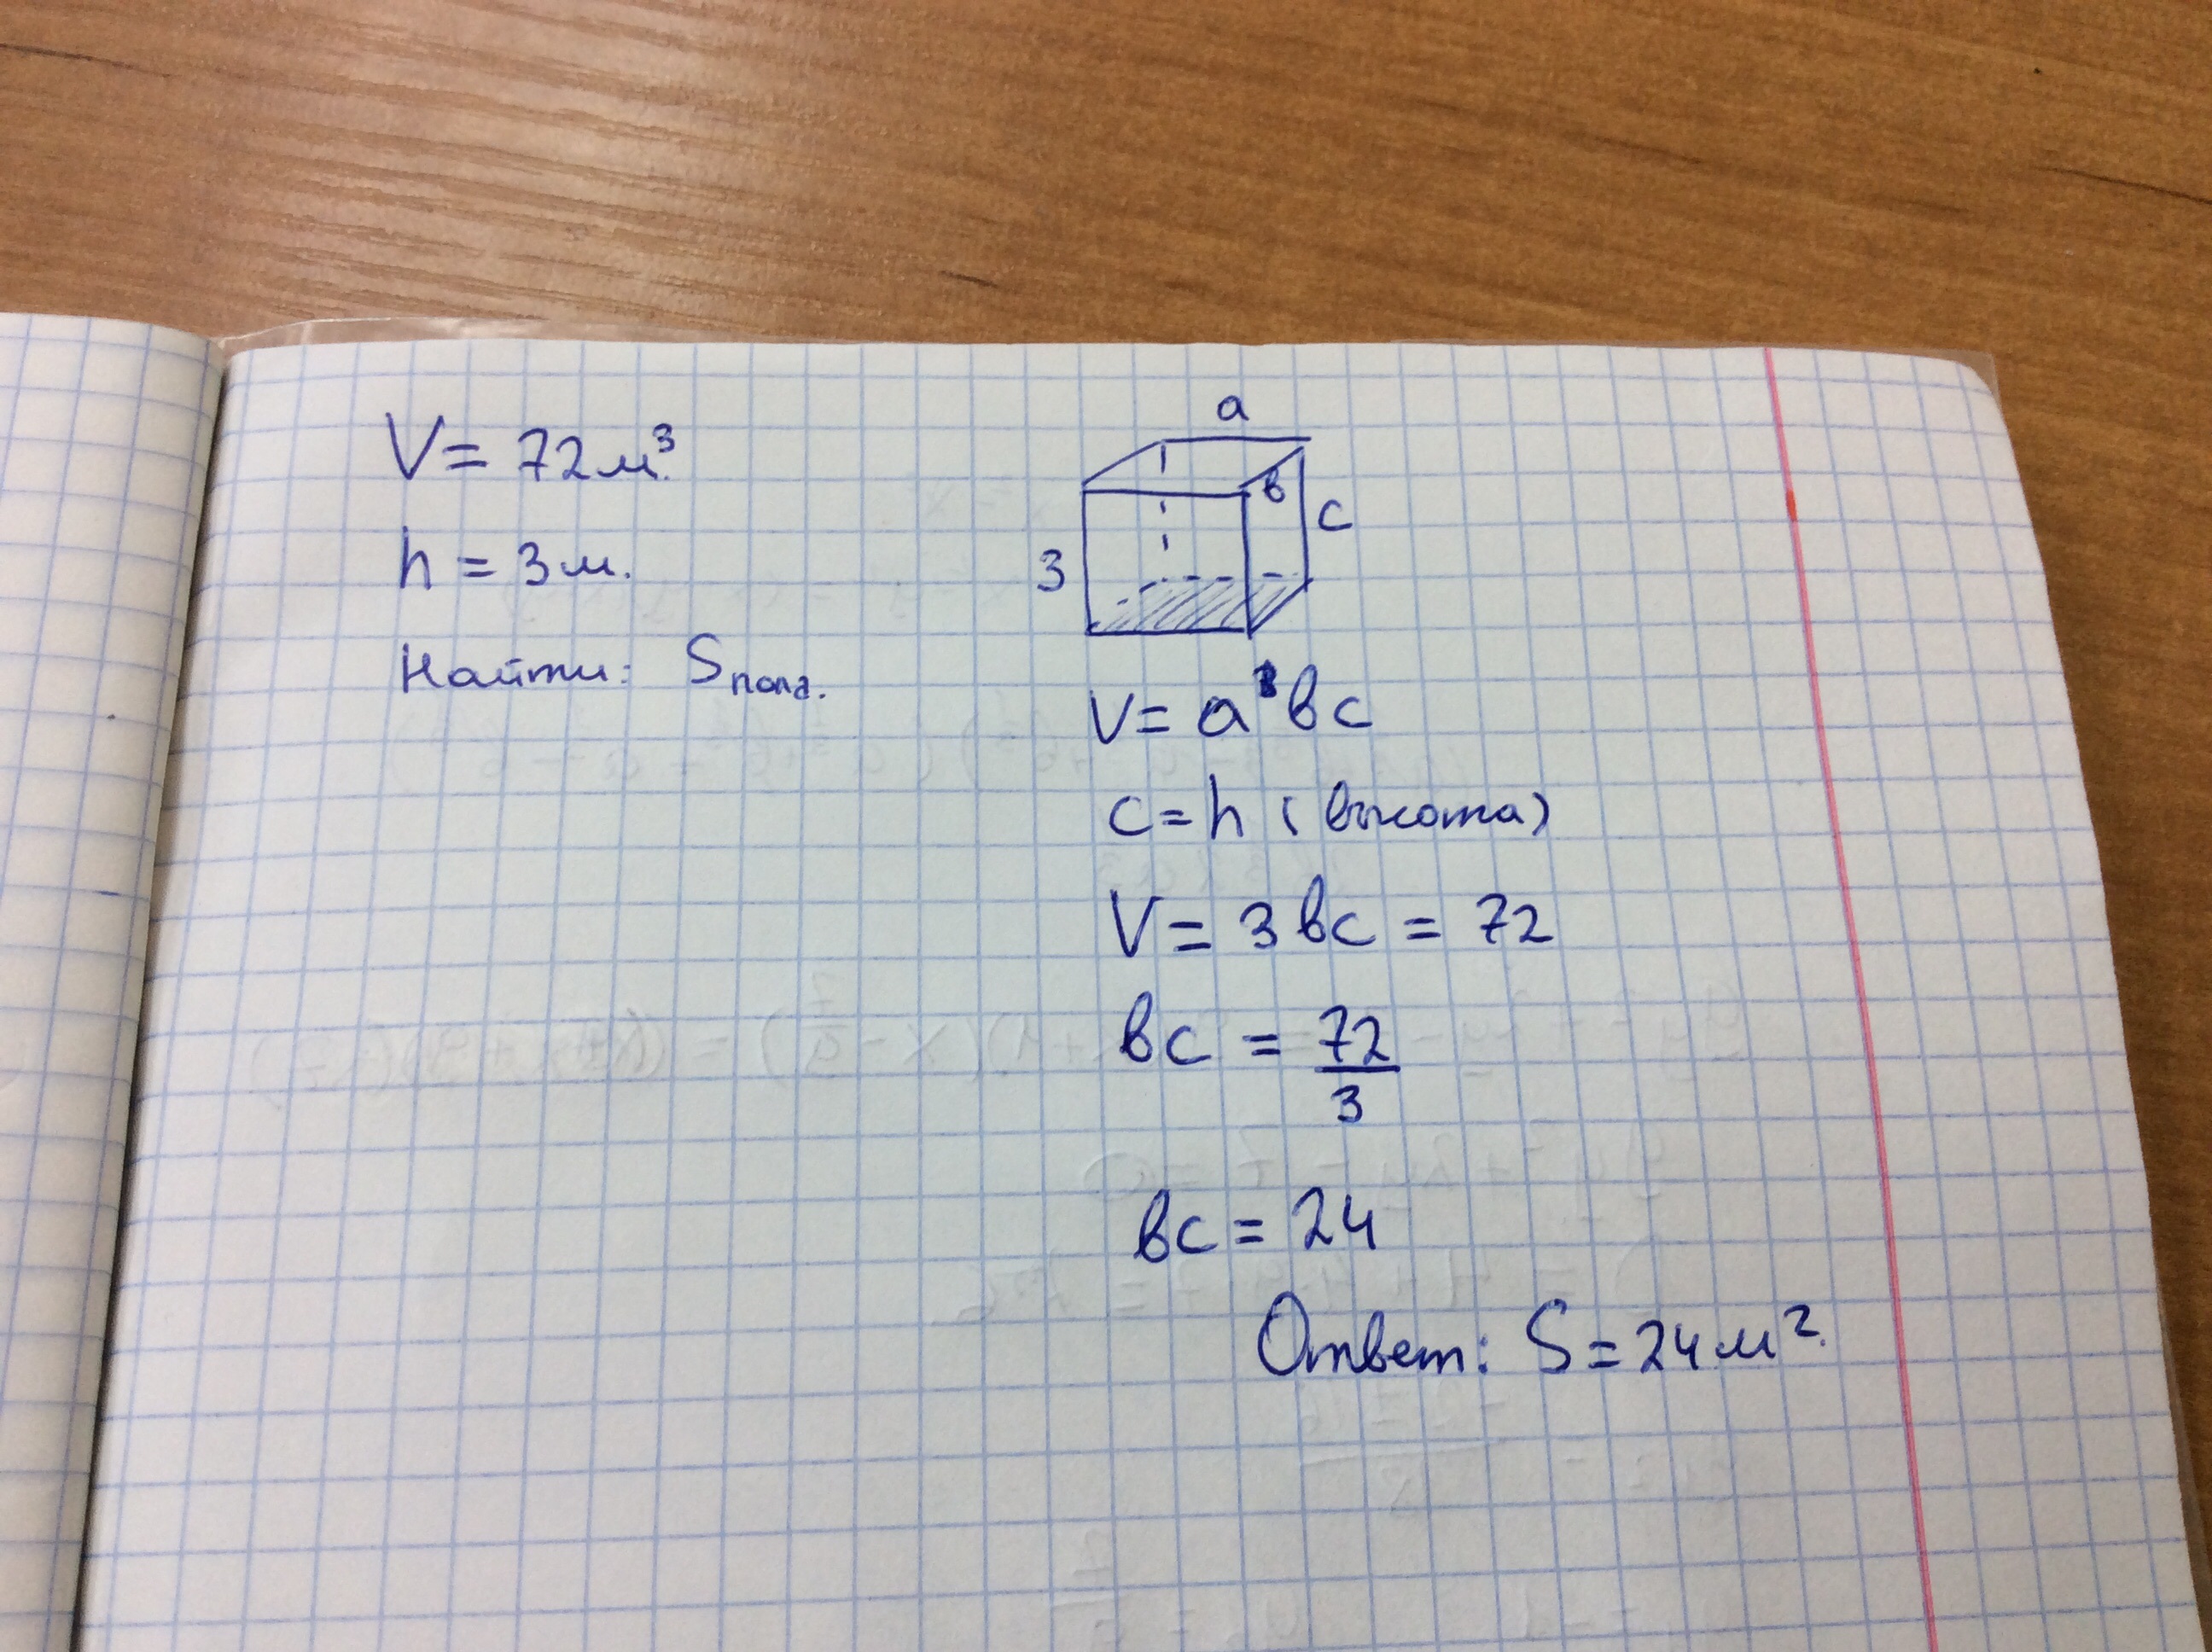 V = 72 м³.
h = 3 м.
Найти: Sпола.
a
в
c
3
V = a вc
c = h (высота)
V = 3 вc = 72
вc = 72/3
вc = 24
Ответ: S = 24 м².